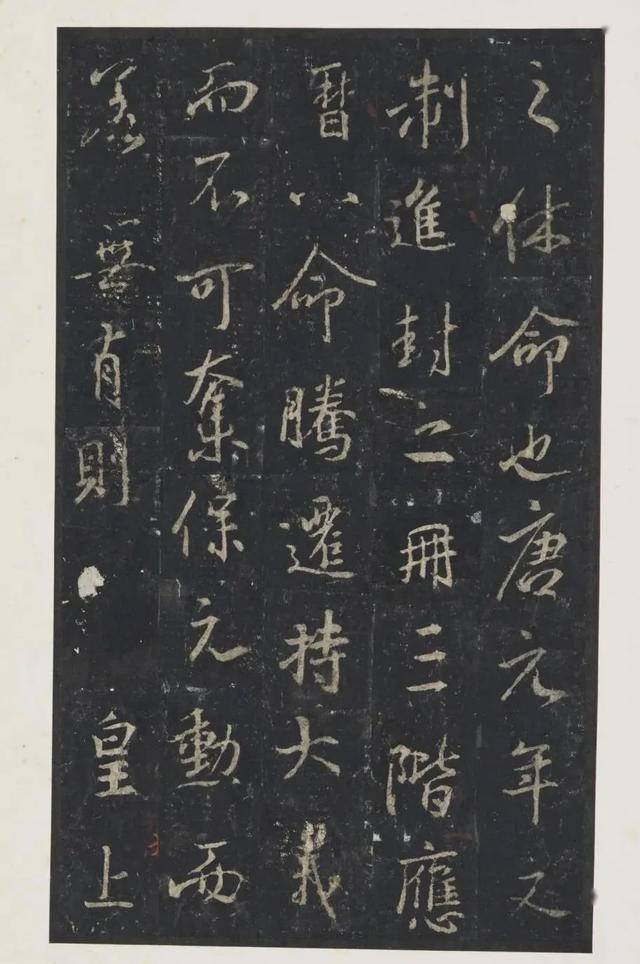 之休命也唐元年之
制進封之冊三階應
曆八命騰遷持大義
而不可奪保元勳而
若無有則皇上